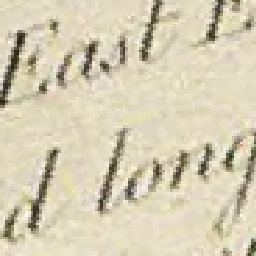 East E
d long